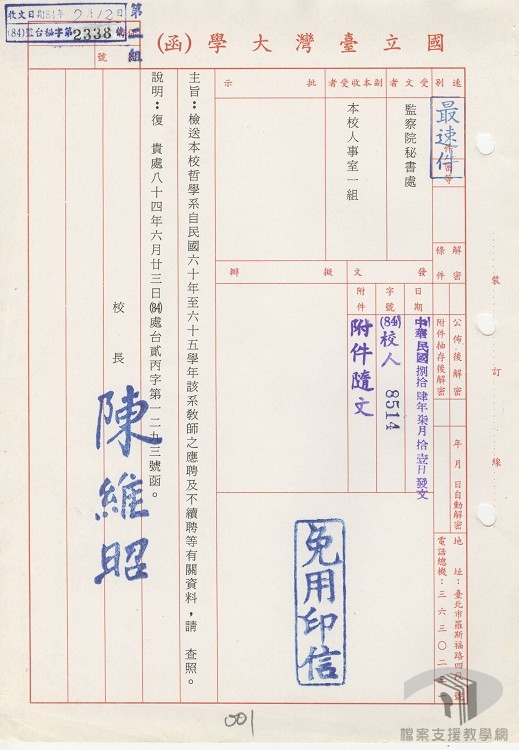 國立臺灣大學(函)
收文日期84年7月12日
(84)監台祕字第2338號
第二組
號
速別
最速件
密等
解密條件
公佈後解密
附件抽存後解密
年 月 日自動解密
地 址：臺北市羅斯福路四段 號
電話總機：三六三〇二
裝 訂 線
受文者
監察院秘書處
副本收受者
本校人事室一組
批示
發文
日期
中華民國捌拾肆年柒月拾壹日發文
字號
(84)校人 8514
附件
附件隨文
擬辦
主旨：檢送本校哲學系自民國六十年至六十五學年該系教師之應聘及不續聘等有關資料，請 查照。
說明：復 貴處八十四年六月廿三日(84)處台貳丙字第一二九三號函。
校長 陳維昭
免用印信
001
檔案支援教學網